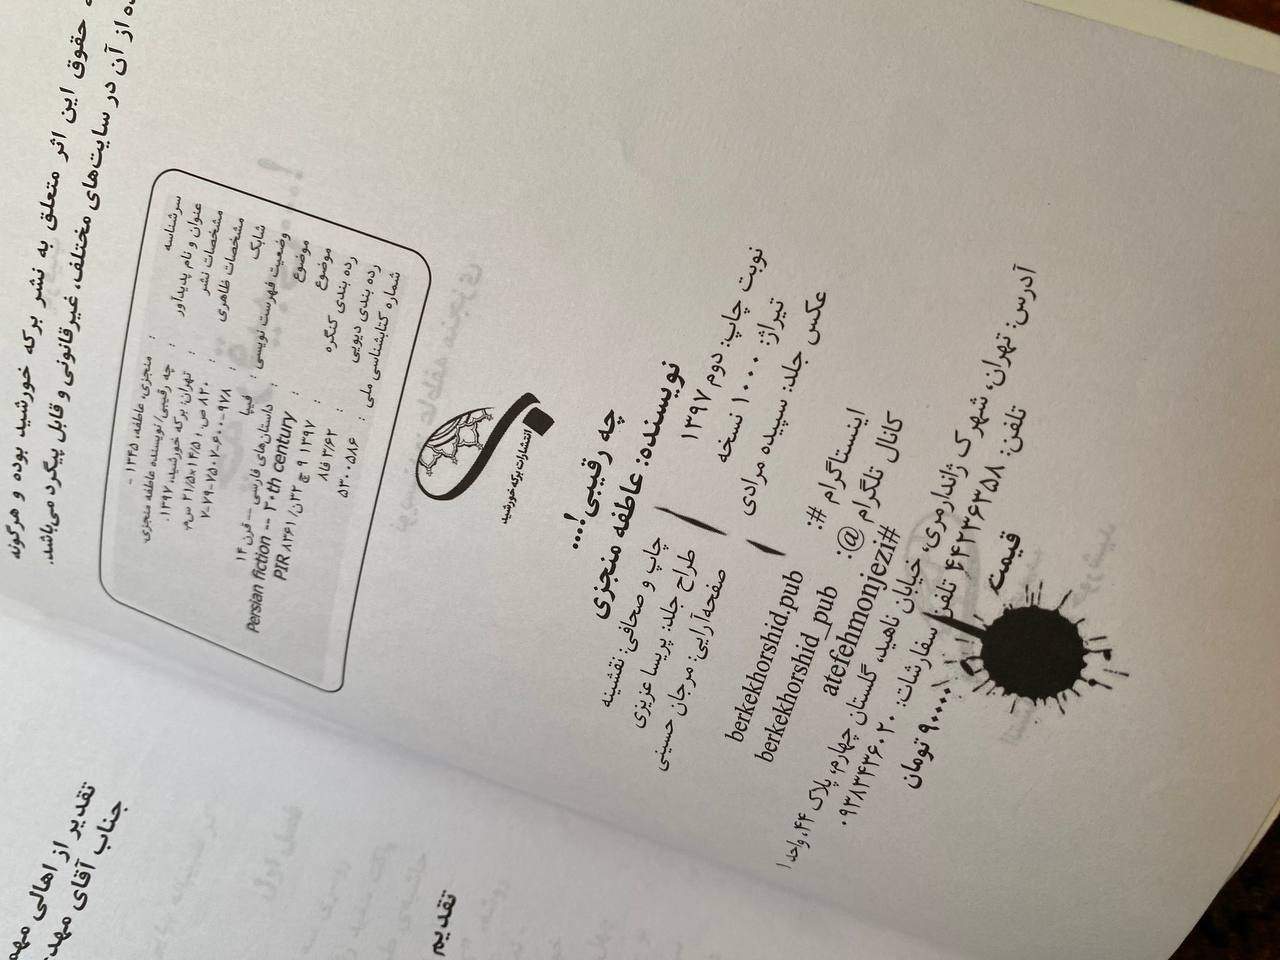 حقوق این اثر متعلق به نشر برکه خورشید بوده و هرگونه
از آن در سایت‌های مختلف، غیرقانونی و قابل پیگرد می‌باشد.
سرشناسه : منجزی، عاطفه، ۱۳۴۵ -
عنوان و نام پدیدآور : چه رقیبی!/ نویسنده عاطفه منجزی.
مشخصات نشر : تهران: برکه خورشید، ۱۳۹۷.
مشخصات ظاهری : ۸۲۰ ص؛ ۲۱/۵×۱۴/۵ س‌م.
شابک : ۹۷۸-۶۰۰-۷۵۰۷-۷۹-۷
وضعیت فهرست نویسی : فیپا
موضوع : داستان‌های فارسی -- قرن ۱۴
موضوع : Persian fiction -- ۲۰th century
رده بندی کنگره : PIR ۸۳۶۱/ن۲۲ چ ۹ ۱۳۹۷
رده بندی دیویی : ۸فا ۳/۶۲
شماره کتابشناسی ملی : ۵۳۰۰۵۸۶
انتشارات برکه خورشید
چه رقیبی!....
نویسنده: عاطفه منجزی
نوبت چاپ: دوم ۱۳۹۷
چاپ و صحافی: نقشینه
تیراژ: ۱۰۰۰ نسخه
طراح جلد: پریسا عزیزی
عکس جلد: سپیده مرادی
صفحه‌آرایی: مرجان حسینی
اینستاگرام #: berkekhorshid.pub
کانال تلگرام @: berkekhorshid_pub
#atefehmonjezi
آدرس: تهران، شهرک ژاندارمری، خیابان ناهید، گلستان چهارم، پلاک ۴۴، واحد ۱
تلفن: ۴۴۲۳۶۳۵۸ تلفن سفارشات: ۰۹۳۸۳۴۳۶۰۲۰
قیمت
۹۰۰۰۰ تومان
تقدیر از اهالی
جناب آقای
تقدیم